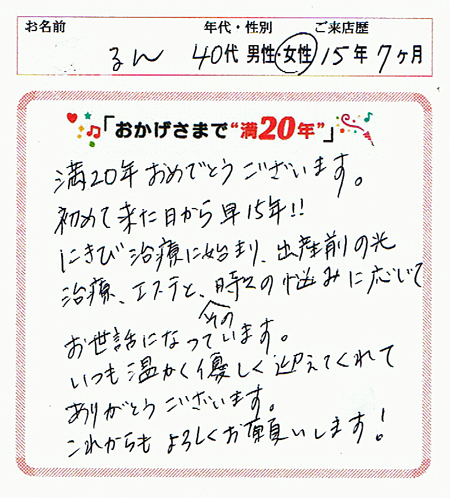 お名前 年代・性別 ご来店歴
るん 40代 男性・女性 15年7ヶ月
「おかげさまで“満20年”」
満20年おめでとうございます。
初めて来た日から早15年!!
にきび治療に始まり、出産前の光
治療、エステと、その時々の悩みに応じて
お世話になっています。
いつも温かく優しく迎えてくれて
ありがとうございます。
これからもよろしくお願いします!